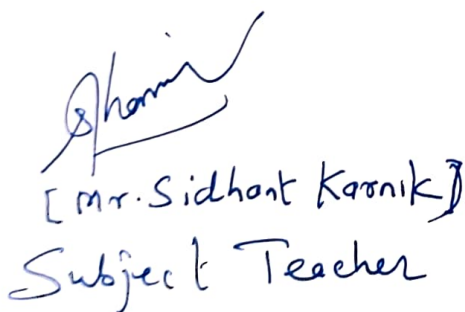 [Mr. Sidhant Karnik]
Subject Teacher